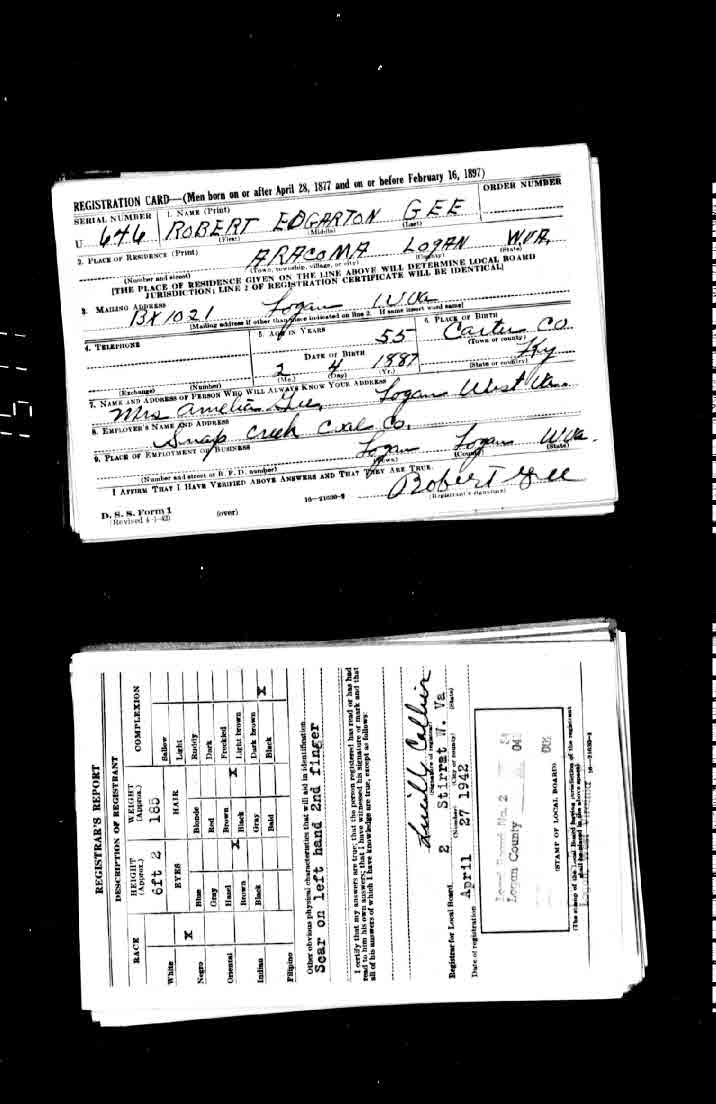 REGISTRATION CARD—(Men born on or after April 28, 1877 and on or before February 16, 1897)
SERIAL NUMBER 1. NAME (Print) ORDER NUMBER
U 646 ROBERT EDGARTON GEE
(First) (Middle) (Last)
2. PLACE OF RESIDENCE (Print)
ARACOMA LOGAN W.VA.
(Number and street) (Town, township, village, or city) (County) (State)
[THE PLACE OF RESIDENCE GIVEN ON THE LINE ABOVE WILL DETERMINE LOCAL BOARD
JURISDICTION; LINE 2 OF REGISTRATION CERTIFICATE WILL BE IDENTICAL]
3. MAILING ADDRESS
BX 1021 Logan W Va
[Mailing address if other than place indicated on line 2. If same insert word same]
4. TELEPHONE 5. AGE IN YEARS 6. PLACE OF BIRTH
55 Carter CO.
(Town or county)
DATE OF BIRTH
2 4 1887 Ky
(Exchange) (Number) (Mo.) (Day) (Yr.) (State or country)
7. NAME AND ADDRESS OF PERSON WHO WILL ALWAYS KNOW YOUR ADDRESS
Mrs Amelia Gee, Logan West Va.
8. EMPLOYER'S NAME AND ADDRESS
Creek Coal Co.
9. PLACE OF EMPLOYMENT OR BUSINESS
Logan Logan W Va.
(Number and street or R. F. D. number) (Town) (County) (State)
I AFFIRM THAT I HAVE VERIFIED ABOVE ANSWERS AND THAT THEY ARE TRUE.
Robert Gee
D. S. S. Form 1 16—21630-2 (Registrant's signature)
(Revised 4-1-42) (over)
REGISTRAR'S REPORT
DESCRIPTION OF REGISTRANT
RACE HEIGHT (Approx.) WEIGHT (Approx.) COMPLEXION
6ft 2 185
White EYES HAIR Sallow
Light
Negro X Blue Blonde Ruddy
Gray Red Dark
Oriental Hazel Brown Freckled
Brown X Black X Light brown
Indian Black Gray Dark brown X
Bald Black
Filipino
Other obvious physical characteristics that will aid in identification
Scar on left hand 2nd finger
I certify that my answers are true; that the person registered has read or has had
read to him his own answers; that I have witnessed his signature or mark and that
all of his answers of which I have knowledge are true, except as follows:
(Signature of registrar)
Registrar for Local Board 2 Stirrat W. Va
(Number) (City or county) (State)
Date of registration April 27 1942
Local Board No. 2
Logan County
(STAMP OF LOCAL BOARD)
(The stamp of the Local Board having jurisdiction of the registrant
shall be placed in the above space)
16—21630-2